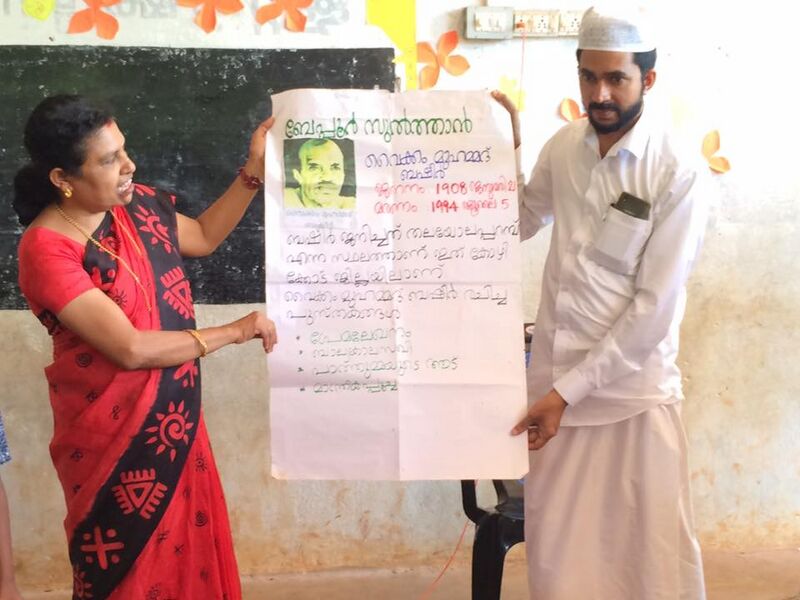 ബേപ്പൂർ സുൽത്താൻ
വൈക്കം മുഹമ്മദ്
ബഷീർ
ജനനം: 1908 ജനുവരി 21
മരണം: 1994 ജൂലൈ 5
ബഷീർ ജനിച്ചത് തലയോലപ്പറമ്പ്
എന്ന സ്ഥലത്താണ് ഇത് കോഴി
ക്കോട് ജില്ലയിലാണ്
വൈക്കം മുഹമ്മദ് ബഷീർ രചിച്ച
പുസ്തകങ്ങൾ
* പ്രേമലേഖനം
* ബാല്യകാലസഖി
* പാത്തുമ്മയുടെ ആട്